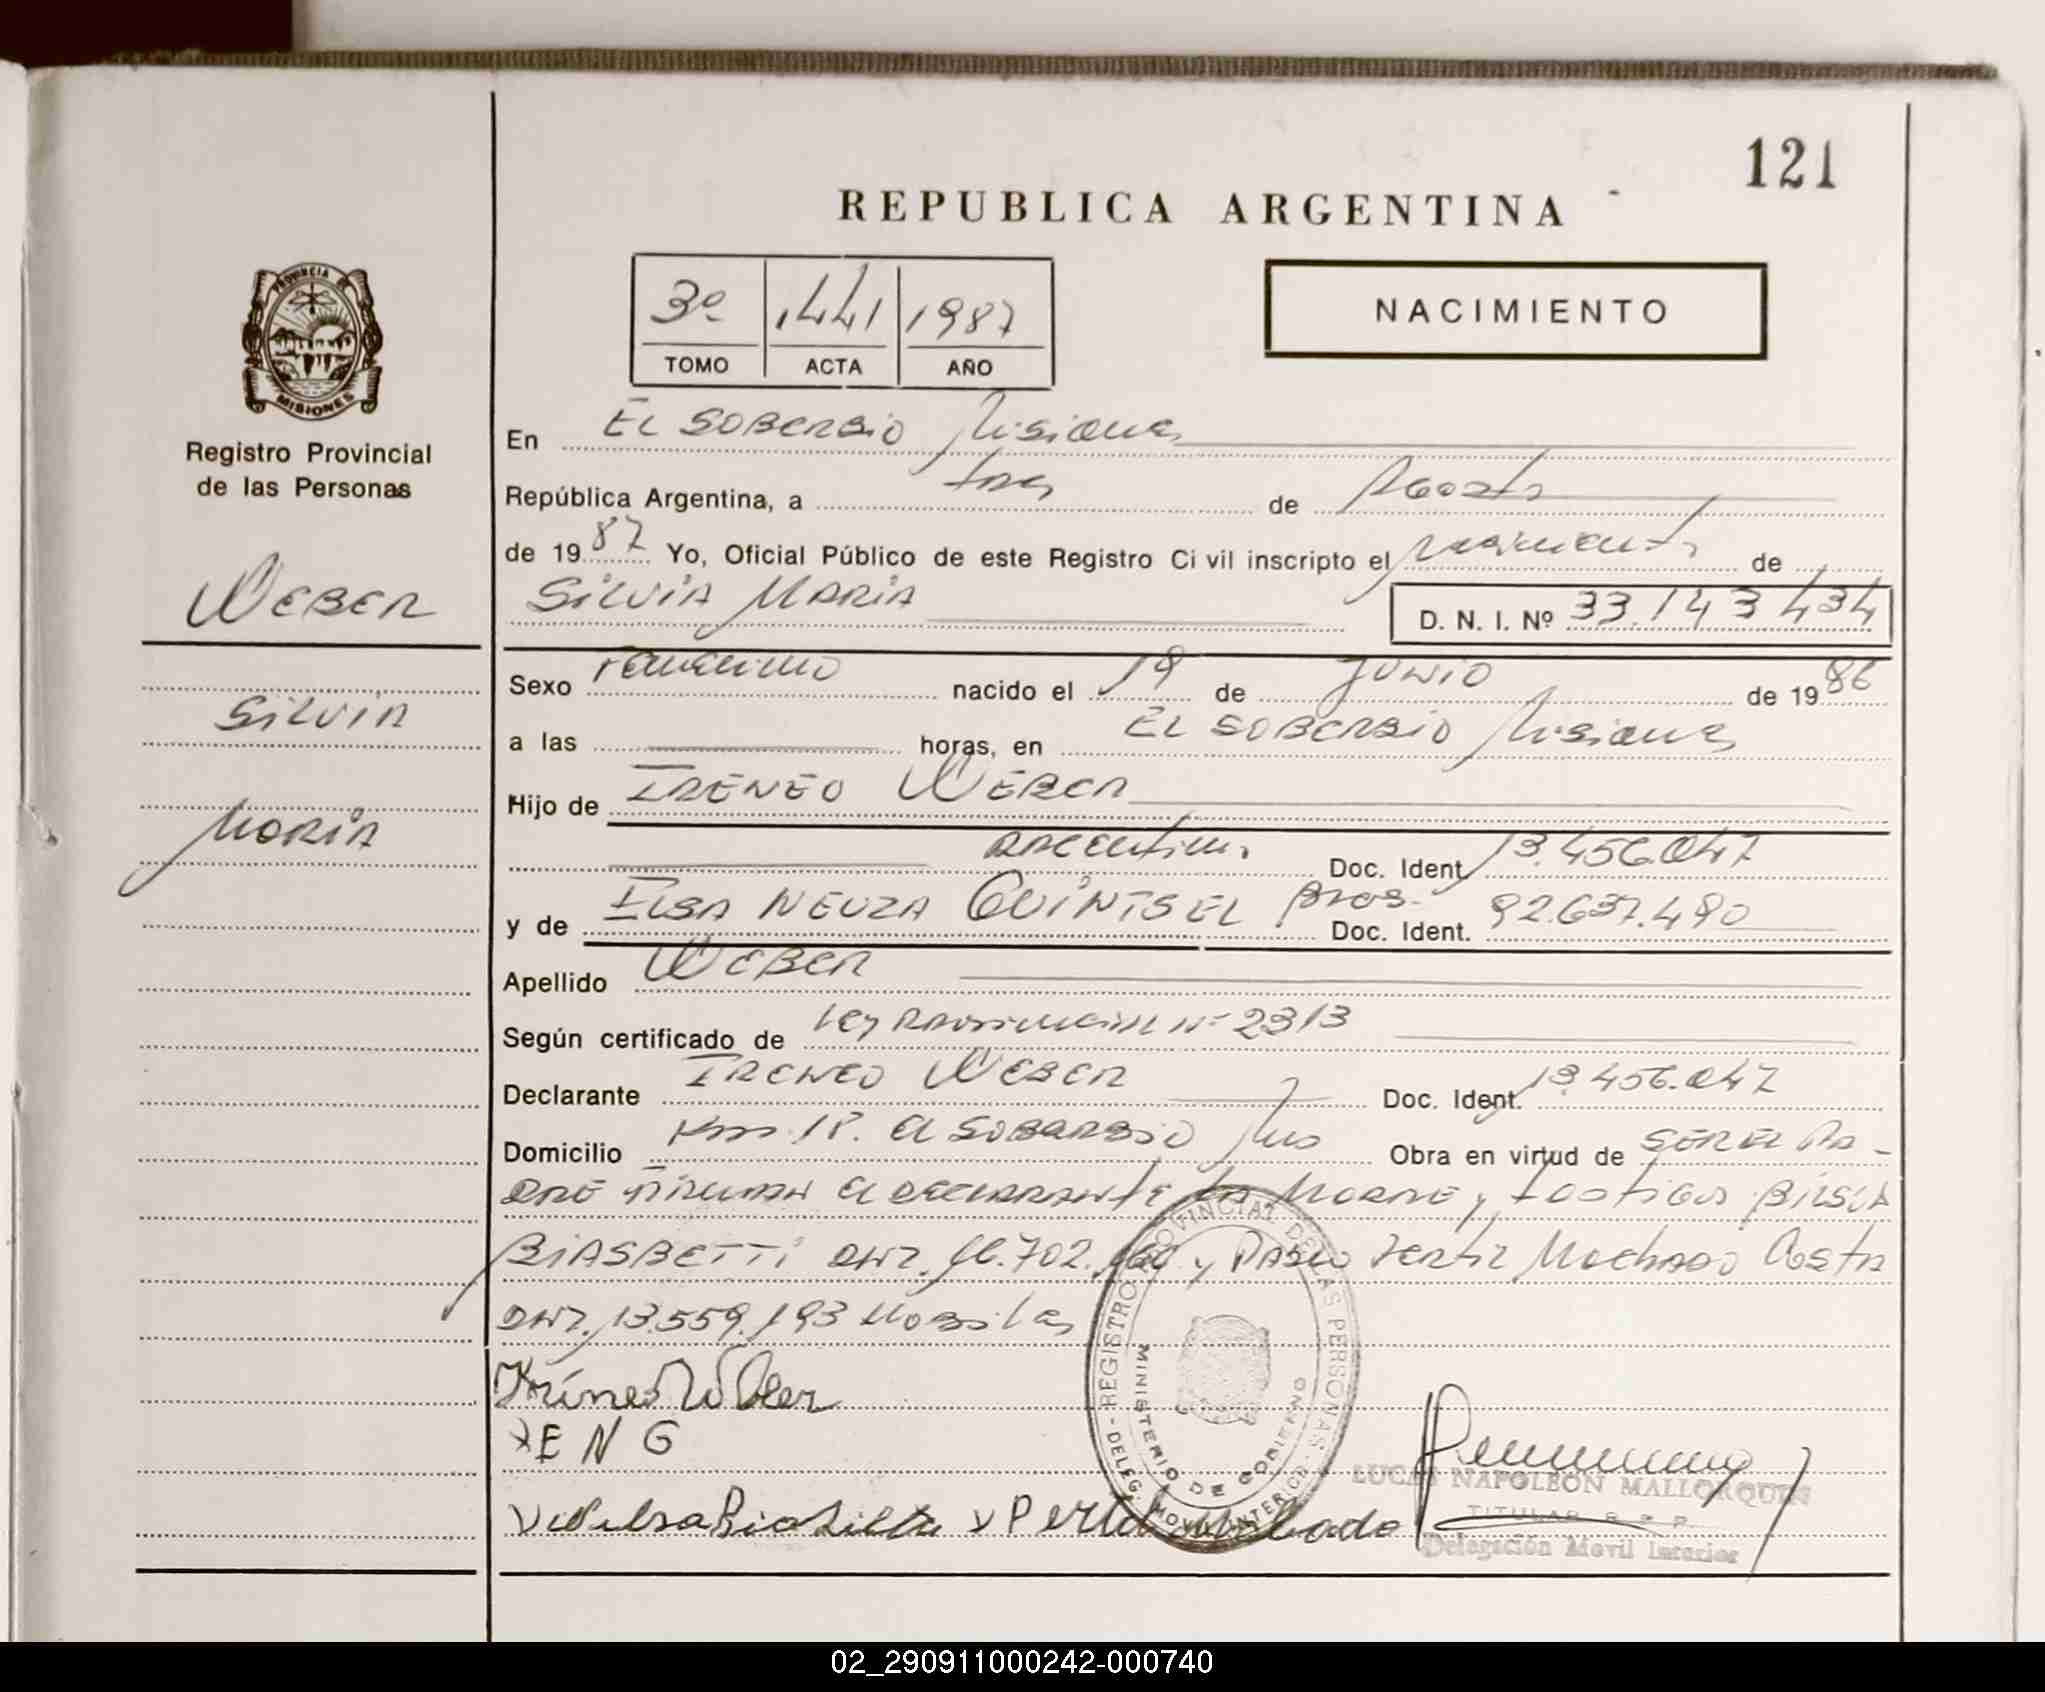 121
REPUBLICA ARGENTINA
3º 1441 1987
TOMO ACTA AÑO
NACIMIENTO
PROVINCIA DE
MISIONES
Registro Provincial
de las Personas
WEBER
SILVIA
MARIA
En EL SOBERBIO Misiones
República Argentina, a tres de Agosto
de 1987 Yo, Oficial Público de este Registro Ci vil inscripto el nacimiento de
SILVIA MARIA D. N. I. Nº 33.143434
Sexo Femenino nacido el 19 de JUNIO de 1986
a las horas, en EL SOBERBIO Misiones
Hijo de IRENEO WEBER
Argentino Doc. Ident. 13.456.047
y de ILSA NEUZA QUINTSEL Bras. Doc. Ident. 92.637.490
Apellido WEBER
Según certificado de Ley Provincial Nº 2313
Declarante IRENEO WEBER Doc. Ident. 13.456.047
Domicilio Km. 18. El SOBERBIO Mnes Obra en virtud de SER EL PA-
DRE FIRMAN El DECLARANTE LA MADRE y Testigos
BIASBETTI DNI. 16.702. y PABLO Machado Costa
DNI. 13.559.193
Weber
x E N G
REGISTRO PROVINCIAL DE LAS PERSONAS - DELEG. MOVIL INTERIOR
MINISTERIO DE GOBIERNO
LUCAS NAPOLEON MALLORQUIN
TITULAR
Delegación Movil Interior
02_290911000242-000740